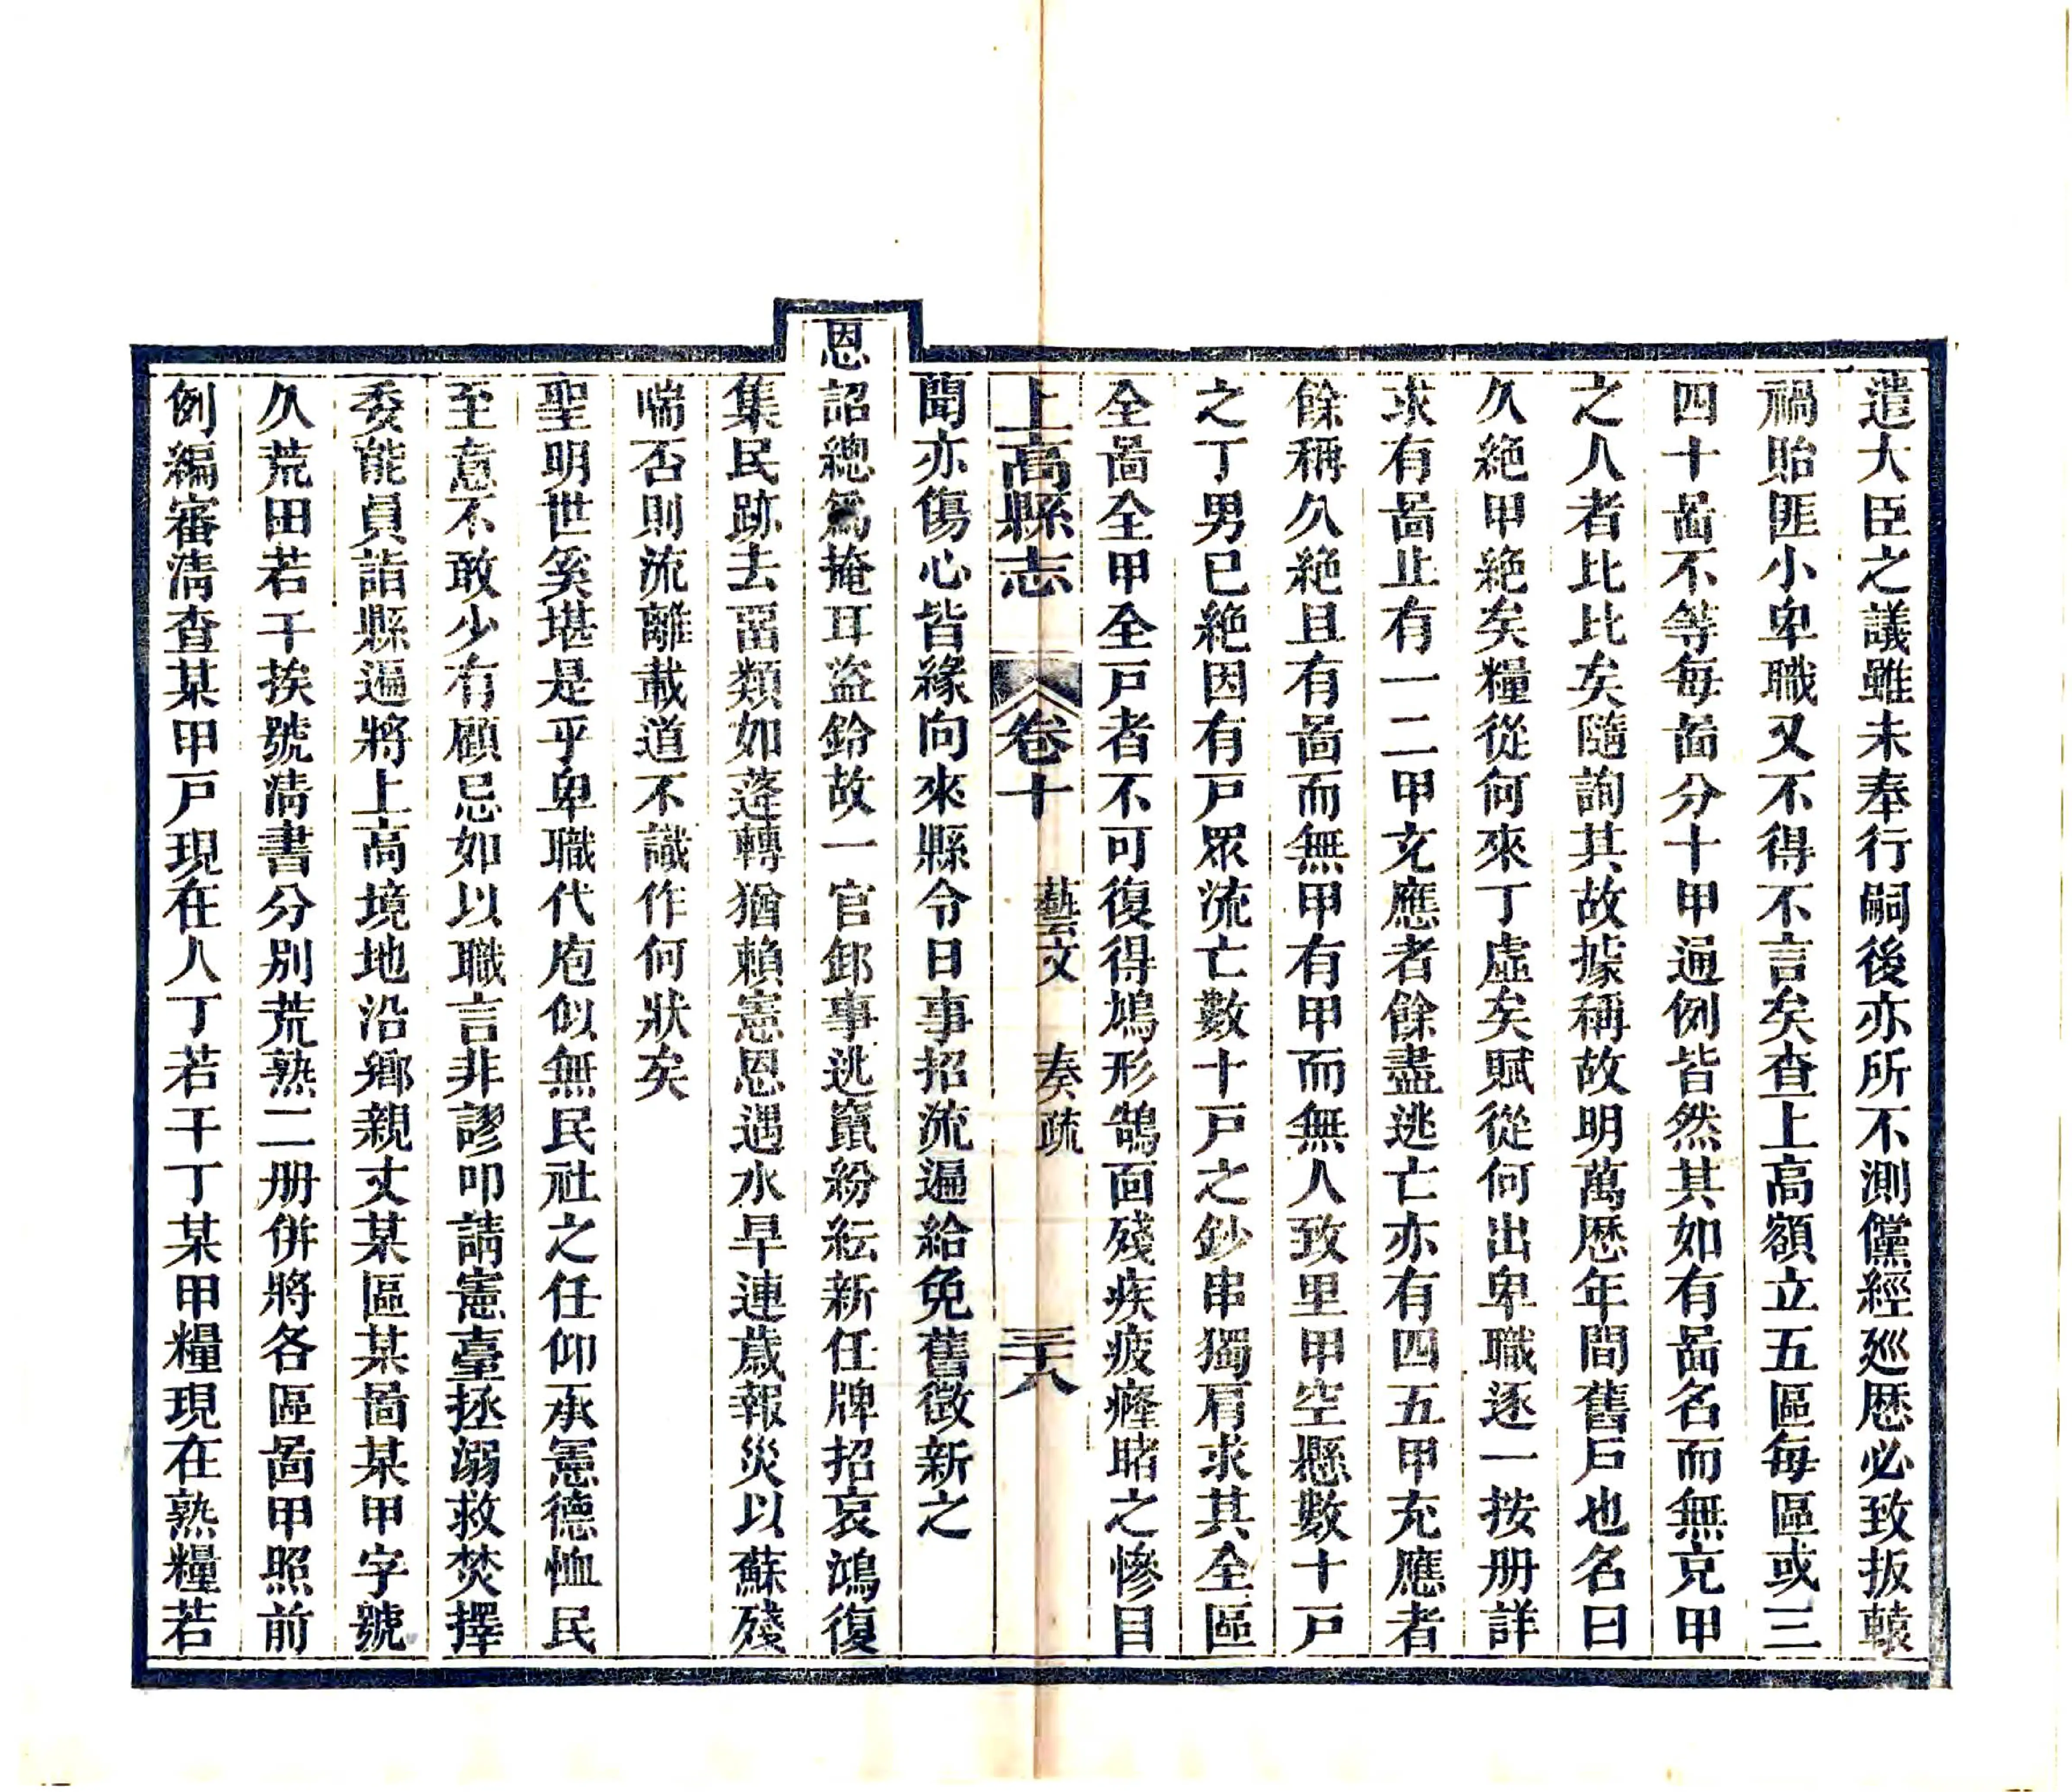 遣大臣之議雖未奉行嗣後亦所不測儻經廵歷必致扳轅
禍貽匪小卑職又不得不言矣查上高額立五區每區或三
四十啚不等每啚分十甲通例皆然其如有啚名而無克甲
之人者比比矣隨詢其故據稱故明萬歷年間舊戶也名曰
久絶甲絶矣糧從何來丁虛矣賦從何出卑職逐一按册詳
求有啚止有一二甲充應者餘盡逃亡亦有四五甲充應者
餘稱久絶且有啚而無甲有甲而無人致里甲空懸數十戶
之丁男已絶因有戶眾流亡數十戶之鈔串獨肩求其全區
全啚全甲全戶者不可復得鳩形鵠面殘疾疲癃睹之慘目
上高縣志 卷十 藝文 奏疏 三十八
聞亦傷心皆緣向來縣令日事招流遍給免舊徵新之
恩詔總爲掩耳盜鈴故一官卸事逃竄紛紜新任牌招哀鴻復
集民跡去畱類如蓬轉猶賴憲恩遇水旱連歲報災以蘇殘
喘否則流離載道不識作何狀矣
聖明世奚堪是乎卑職代庖似無民社之任仰承憲德恤民
至意不敢少有顧忌如以職言非謬叩請憲臺拯溺救焚擇
委能員詣縣遍將上高境地沿鄉親丈某區某啚某甲字號
久荒田若干挨號清書分別荒熟二册併將各區啚甲照前
例編審清查某甲戶現在人丁若干丁某甲糧現在熟糧若